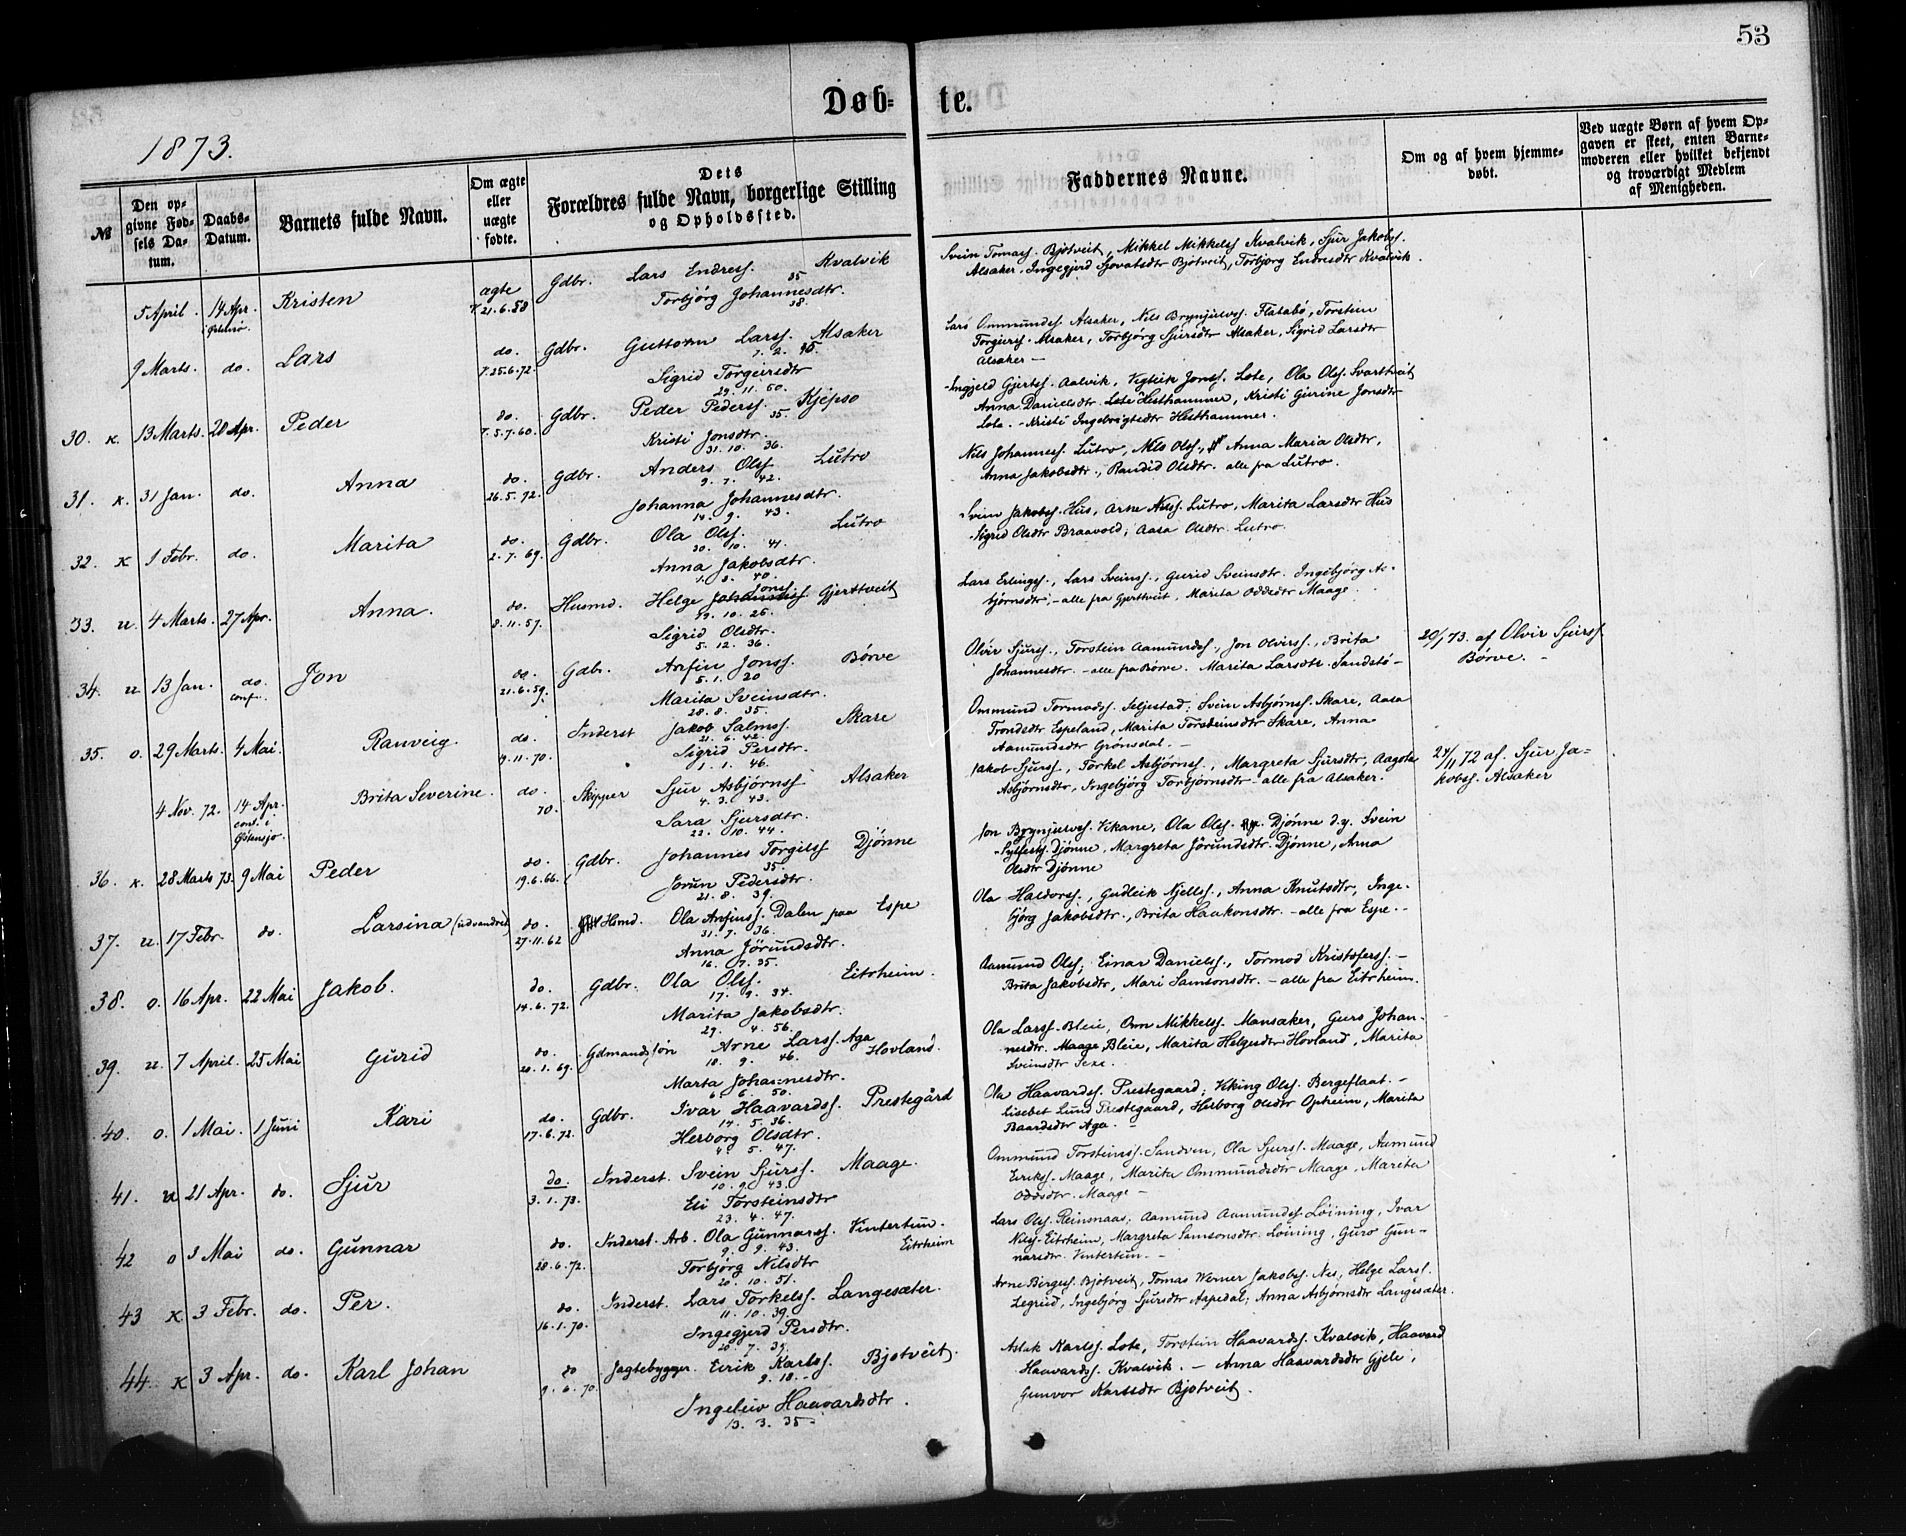 53
Døb= te.
1873.
№
Den op-
givne Fød-
sels Da-
tum.
Daabs-
Datum.
Barnets fulde Navn.
Om ægte
eller
uægte
fødte.
Dets
Forældres fulde Navn, borgerlige Stilling
og Opholdssted.
Faddernes Navne.
Om og af hvem hjemme-
døbt.
Ved uægte Børn af hvem Op-
gaven er skeet, enten Barne-
moderen eller hvilket bekjendt
og troværdigt Medlem
af Menigheden.
5 April. 14 Apr. Kristen ægte Gdbr. Lars Endress. Kvalvik
35
7.21.6.58 Torbjørg Johannesdtr.
38.
Svein Tomass. Bjotveit, Mikkel Mikkelss Kvalvik, Sjur Jakobs.
Alsaker. Ingegjerd Sjovatsdtr Bjotveit, Torbjørg Endresdtr Kvalvik.
9 Marts. do. Lars do. Gdbr. Guttorm Larss. Alsaker
7.25.6.72. Sigrid Torgeirsdtr
29. 11. 50.
Lars Ommundss Alsaker, Nils Brynjulvss. Flatabø, Torstein
Torgeirss. Alsaker, Torbjørg Sjursdtr Alsaker, Sigrid Larsdtr
Alsaker —
30. K. 13 Marts. 20 Apr. Peder do. Gdbr. Peder Peders. Kjepso
35.
7.5.7.60. Kristi Jonsdtr.
31. 10. 36.
Ingjeld Gjertss. Aalvik, Vigleik Jonss. Lote, Ola Olss. Svartveit
Anna Danielsdtr. Lote Hesthammer, Kristi Gurine Jonsdtr
Lote. - Kristi Ingebrigtsdtr Hesthammer.
31. K. 31 Jan. do. Anna do. Gdbr. Anders Olss Lutro
9. 7. 42.
26.5.72. Johanna Johannesdtr.
14. 9. 43.
Nils Johanness. Lutro, Nils Olss., Anna Maria Olsdtr,
Anna Jakobsdtr., Randid Olsdtr. alle fra Lutro.
32. K 1 Febr. do. Marita do. Gdbr. Ola Olss. Lutro
30. 10. 41.
2.7.69. Anna Jakobsdtr.
1. 3. 40.
Svein Jakobss. Hus, Arne Nilss. Lutro, Marita Larsdtr Hus
Sigrid Olsdtr Braavold; Aasa Olsdtr. Lutro.
33. u. 4 Marts. 27 Apr. Anna. do. Husmd. Helge Jonss. Gjerttveit
29. 10. 26.
8.11.57. Sigrid Olsdtr.
5. 12. 36.
Lars Erlings., Lars Sveinss., Gurid Sveinsdtr. Ingebjørg As-
bjørnsdtr, - alle fra Gjerttveit, Marita Oddsdtr Maage.
34. u. 13 Jan. do. Jon do. Gdbr. Arfin Jonss. Børve
conf. 5. 1. 20
21.6.59. Marita Sveinsdtr.
28. 8. 35.
Olvir Sjurss., Torstein Aamundss., Jon Olvirss., Brita
Johannesdtr. - alle fra Børve. Marita Larsdtr. Sandstø -
20/1 73. af Olvir Sjurss.
Børve. -
35. o. 29 Marts. 4 Mai. Ranveig. do. Inderst Jakob Salmss. Skare
21. 6. 42.
9.11.70. Sigrid Persdtr.
1. 1. 46.
Ommund Tormodss. Seljestad; Svein Asbjørnss. Skare, Aasa
Trondsdtr Espeland, Marita Torsteinsdtr Skare, Anna
Aamundsdtr Grønsdal. -
4 Nov. 72. 14 Apr. Brita Severine. do. Skipper Sjur Asbjørnss Alsaker
conf. i 4. 3. 43.
Østensjo. 70. Sara Sjursdtr.
22. 10. 44.
Jakob Sjurss, Torkel Asbjørns., Margreta Sjursdtr, Aagota
Asbjørnsdtr, Ingebjørg Torbjørnsdtr - alle fra Alsaker.
24/11 72 af. Sjur Ja-
kobss. Alsaker
36. K. 28 Marts 73. 9 Mai Peder do. Gdbr. Johannes Torgilss Djønne
35.
19.6.66. Jorun Pedersdtr.
21. 8. 39.
Jon Brynjulvss. Vikane, Ola Olss. Djønne d.y. Svein
Sylfests. Djønne, Margreta Jørundsdtr. Djønne, Anna
Olsdtr Djønne
37. u. 17 Febr. do. Larsina (udvandret) do. Hsmd. Ola Arfinss. Dalen paa Espe
31. 7. 36.
27.11.62 Anna Jørundsdtr.
16. 7. 35.
Ola Haldorss., Gudleik Njellss., Anna Knutsdtr, Inge-
bjørg Jakobsdtr., Brita Haakonsdtr. - alle fra Espe. -
38. o. 16 Apr. 22 Mai Jakob. do. Gdbr. Ola Olss. Eitrheim.
17. 9. 34.
14.6.72. Marita Jakobsdtr.
29. 4. 56.
Aamund Olss, Einar Daniels., Tormod Kristofers. -
Brita Jakobsdtr, Mari Samsonsdtr. - alle fra Eitrheim.
39. u. 7 April. 25 Mai Gurid do. Gdmandssøn Arne Larss. Aga
10. 9. 46. Hovland.
20.1.69. Marta Johannesdtr.
6. 6. 50.
Ola Larss. Bleie, Onn Mikkelss. Mansaker, Guro Johan-
nesdtr. Maage, Bleie, Marita Helgesdtr Hovland, Marita
Sveinsdtr Sexe.
40. o. 1 Mai. 1 Juni Kari do. Gdbr. Ivar Haavardss. Prestegård
14. 5. 36.
17.6.72. Herborg Olsdtr.
4. 5. 47.
Ola Haavardss. Prestegaard; Viking Olss. Bergeflaat. -
Lisebet Lund Prestegaard, Herborg Olsdtr Opheim, Marita
Baardsdtr Aga. -
41. u 21 Apr. do. Sjur do. Inderst. Svein Sjurss. Maage.
10. 9. 43.
3.1.73. Eli Torsteinsdtr
23. 4. 47.
Ommund Torsteinss. Sandven, Ola Sjurss. Maage, Aamund
Eirikss. Maage, Marita Ommundsdtr Maage, Marita
Oddsdtr. Maage -
42 o 3 Mai do. Gunnar do. Inderst. Arb. Ola Gunnarss. Vintertun.
9. 9. 43. Eitrheim
28.6.72. Torbjørg Nilsdtr
20. 10. 51.
Lars Olss. Reinsnaas; Aamund Aamundss Løining, Ivar
Nilss. Eitrheim, Margreta Samsonsdtr. Løining, Guro Gun-
narsdtr. Vintertun. -
43 K 3 Febr. do. Per. do. Inderst. Lars Torkelss. Langesæter.
11. 10. 39.
16.1.70. Ingegjerd Persdtr.
20. 7. 39.
Arne Birgess. Bjotveit, Tomas Werner Jakobss. Nes, Helge Larss.
Legreid, Ingebjørg Sjursdtr Aspedal; Anna Asbjørnsdtr Langesæter.
44 K 3 Apr. do. Karl Johan do Jagtebygger Eirik Karlss. Bjotveit.
9. 10.
9.6.70. Ingeleiv Haavardsdtr.
13. 3. 35.
Aslak Karlss. Lote, Torstein Haavardss. Kvalvik, Haavard
Haavardss. Kvalvik. - Anna Haavardsdtr Gjele,
Gunvor Karlsdtr Bjotveit.